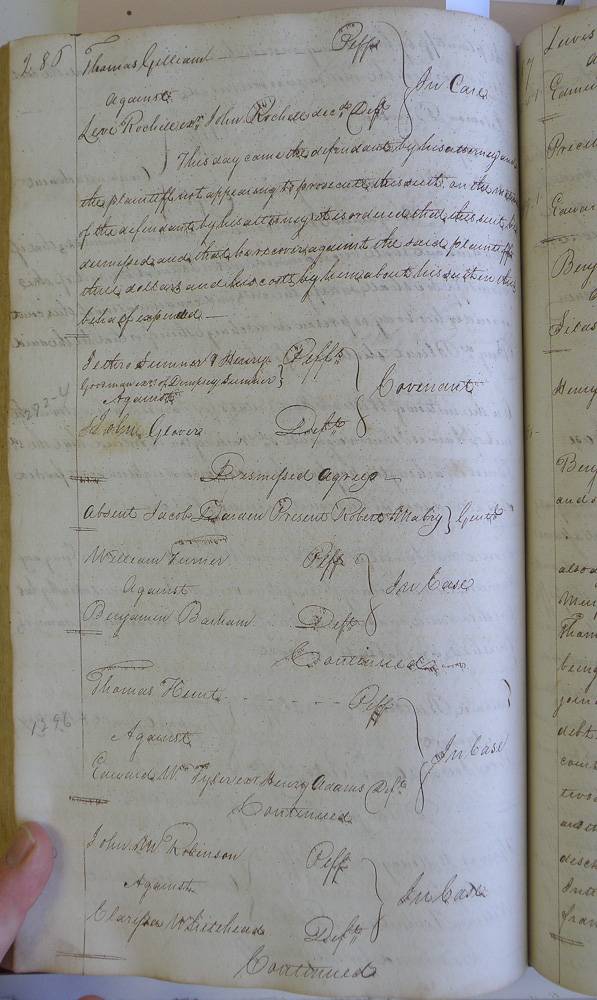 286
Thomas Gilliam Plff
Against
In Case
Levi Rochelle exr. John Rochelle decd. Deft
This day came the defendant by his attorney and
the plaintiff not appearing to prosecute this suit on the
of the defendant by his attorney it is ordered that this suit be
dismissed and that he recover against the said plaintiff
three dollars and his costs by him about his suit in this
behalf expended
Jethro Sumner & Henry Plffs
Goodman exrs of Dempsey Sumner
Covenant
Against
John Glover Deft
Dismissed Agreed
Absent Jacob Darden Present Robert Mabry } Gent
William Turner Plff
Against
In Case
Benjamin Barham Deft
Continued
Thomas Hunt Plff
Against
In Case
Edward Wm Tyler exr Henry Adams Deft
Continued
John M Robinson Plff
Against
In Case
Clarissa Whitehead Deft
Continued
Lewis
Henry
and
also
being
join
debt